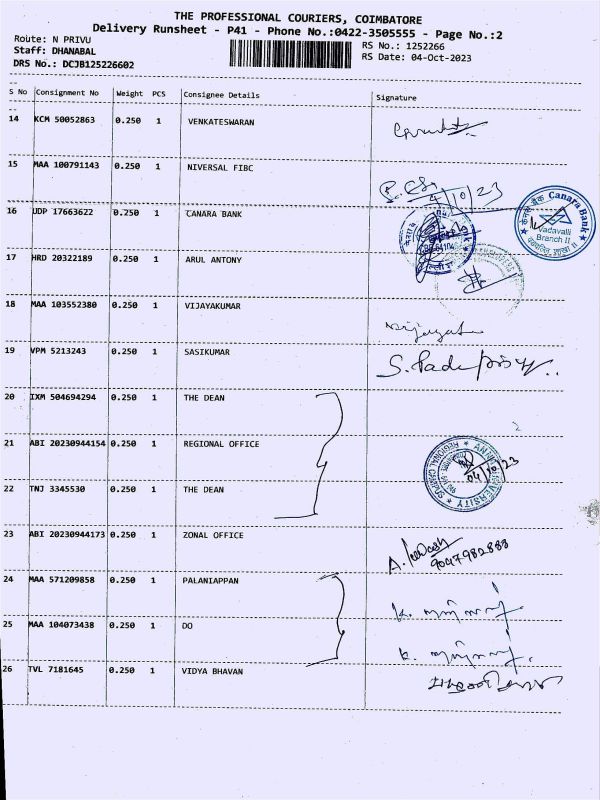 THE PROFESSIONAL COURIERS, COIMBATORE
Delivery Runsheet - P41 - Phone No.:0422-3505555 - Page No.:2
Route: N PRIVU
RS No.: 1252266
Staff: DHANABAL
RS Date: 04-Oct-2023
DRS No.: DCJB125226602
S No Consignment No Weight PCS Consignee Details Signature
14 KCM 50052863 0.250 1 VENKATESWARAN
15 MAA 100791143 0.250 1 NIVERSAL FIBC
4/10/23
16 UDP 17663622 0.250 1 CANARA BANK
केनरा बैंक Canara Bank
Vadavalli
Branch II
17 HRD 20322189 0.250 1 ARUL ANTONY
18 MAA 103552380 0.250 1 VIJAYAKUMAR
19 VPM 5213243 0.250 1 SASIKUMAR
20 IXM 504694294 0.250 1 THE DEAN
21 ABI 20230944154 0.250 1 REGIONAL OFFICE
04/10/23
22 TNJ 3345530 0.250 1 THE DEAN
23 ABI 20230944173 0.250 1 ZONAL OFFICE
9047982888
24 MAA 571209858 0.250 1 PALANIAPPAN
25 MAA 104073438 0.250 1 DO
26 TVL 7181645 0.250 1 VIDYA BHAVAN